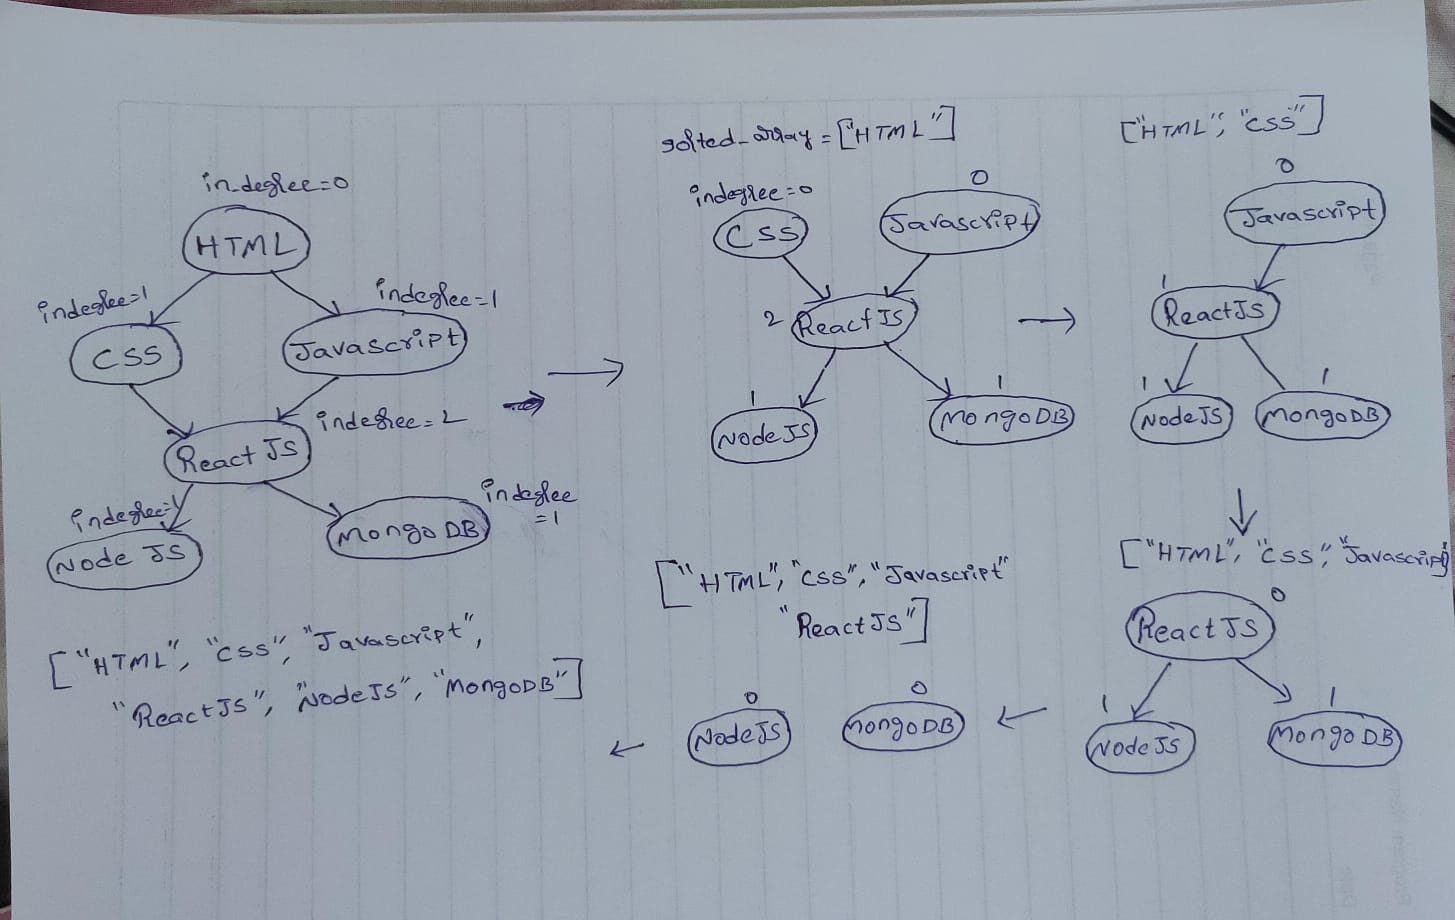 in_degree=0
HTML
indegree=1
indegree=1
CSS
Javascript
indegree=2
React JS
indegree=1
indegree
=1
Node JS
MongoDB
sorted_array=["HTML"]
indegree=0
0
CSS
Javascript
2
React JS
1
1
Node JS
MongoDB
["HTML", "CSS"]
0
Javascript
1
ReactJS
1
1
NodeJS
MongoDB
["HTML", "CSS", "Javascript"]
0
ReactJS
1
1
Node JS
MongoDB
["HTML", "CSS", "Javascript"
"ReactJS"]
0
0
NodeJS
MongoDB
["HTML", "CSS", "Javascript",
"ReactJS", "NodeJS", "MongoDB"]